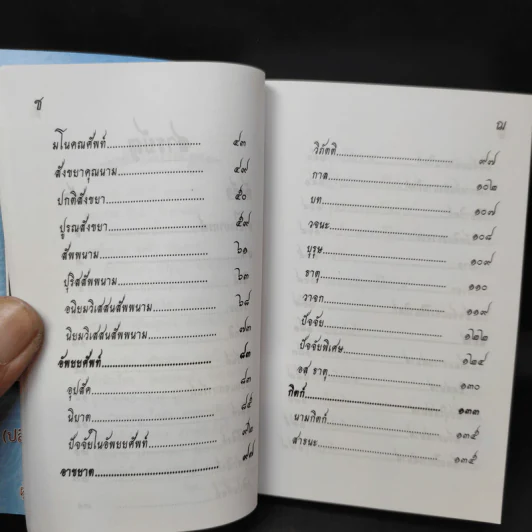 ซ
มโนคณศัพท์ ๔๓
สังขยาคุณนาม ๔๙
ปกติสังขยา ๕๐
ปูรณสังขยา ๕๙
สัพพนาม ๖๑
ปุริสสัพพนาม ๖๓
อนิยมวิเสสนสัพพนาม ๖๘
นิยมวิเสสนสัพพนาม ๗๓
อัพยยศัพท์ ๘๓
อุปสัค ๘๓
นิบาต ๘๕
ปัจจัยในอัพยยศัพท์ ๙๒
อาขยาต ๙๗
ฌ
วิภัตติ ๙๗
กาล ๑๐๒
บท ๑๐๗
วจนะ ๑๐๘
บุรุษ ๑๐๙
ธาตุ ๑๑๐
วาจก ๑๑๙
ปัจจัย ๑๒๒
ปัจจัยพิเศษ ๑๒๔
อสฺ ธาตุ ๑๓๐
กิตก์ ๑๓๓
นามกิตก์ ๑๓๕
สาธนะ ๑๓๕